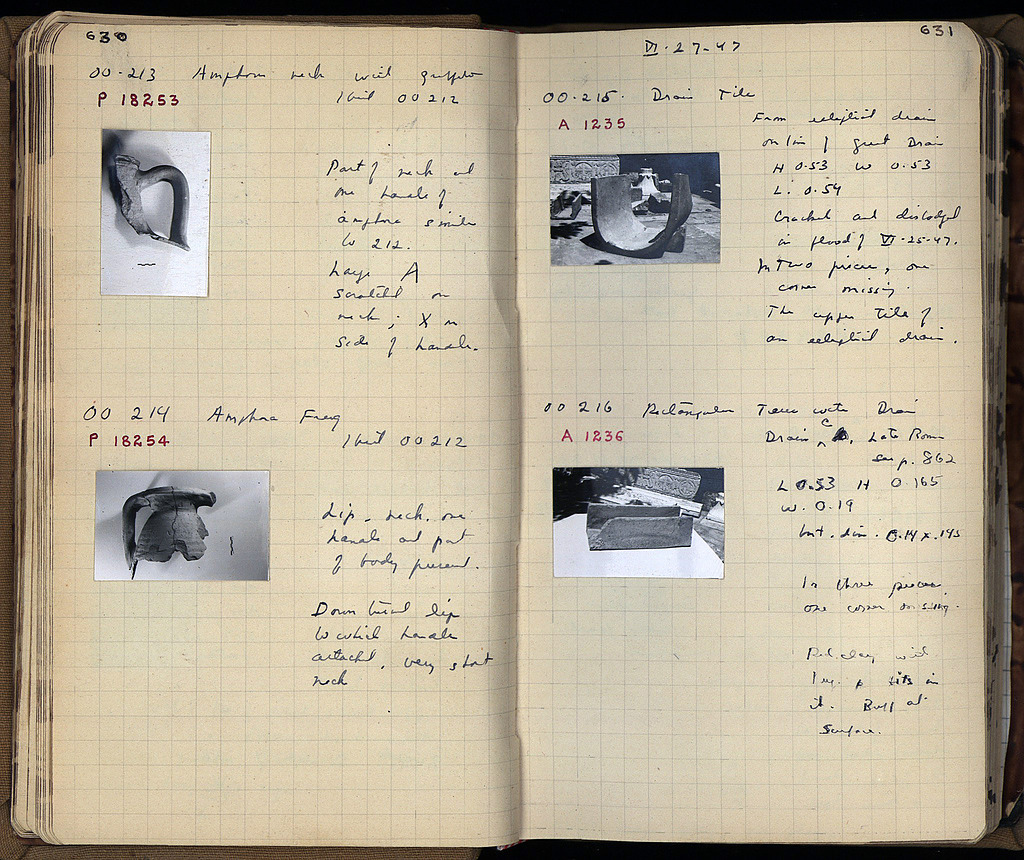 630
OO·213 Amphora neck with graffito
P 18253 1 bid OO 212
Part of neck and
one handle of
amphora similar
to 212.
Large A
scratched on
neck; X on
side of handle.
OO 214 Amphora Frag
P 18254 OO 212
Lip, neck, one
handle and part
of body present.
Down turned lip
to which handle
attached, very short
neck
631
VI·27-47
OO·215· Drain Tile
A 1235
From elliptical drain
on line of great Drain
H 0.53 W 0.53
L. 0.54
Cracked and dislodged
in flood of VI·25·47.
In two pieces, one
corner missing.
The upper tile of
an elliptical drain.
OO 216 Rectangular Terra cotta Drain
A 1236 Drain C, Late Roman
see p. 862
L 0.53 H 0.165
W. 0.19
int. dim. 0.14 x .145
In three pieces,
one corner missing.
Red clay with
bits in
it. Buff at
surface.